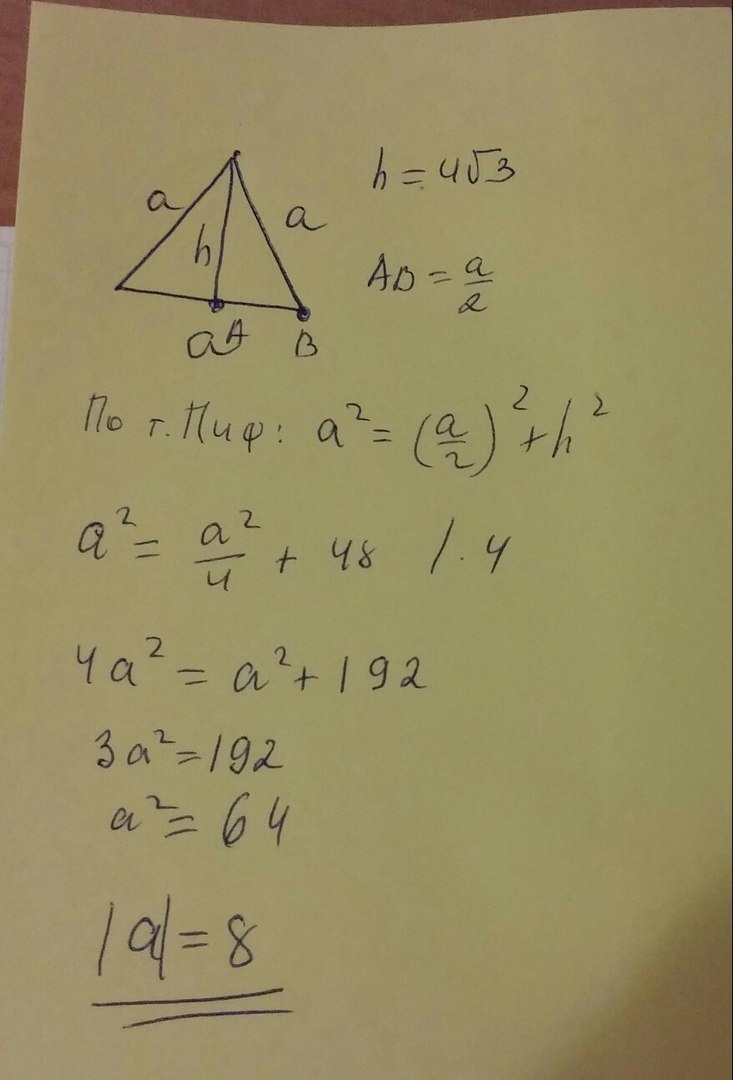 a
h
a
a A
B
h = 4√3
AB = a/2
По т. Пиф: a² = (a/2)² + h²
a² = a²/4 + 48 / · 4
4a² = a² + 192
3a² = 192
a² = 64
|a| = 8